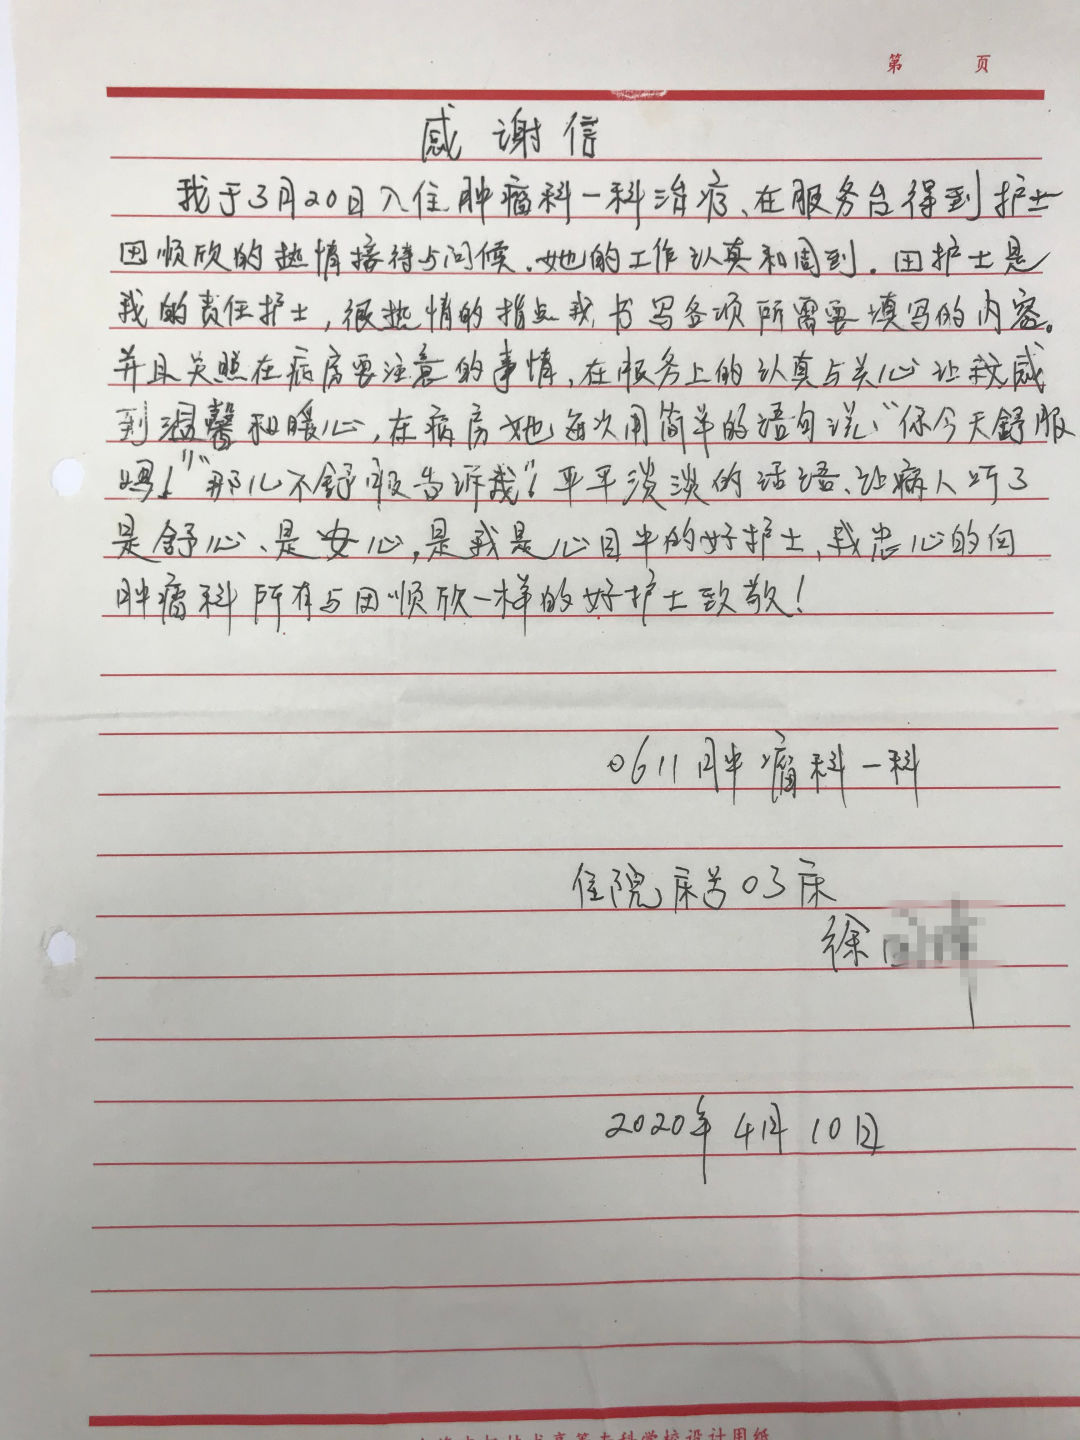 第 页
感谢信
我于3月20日入住肿瘤科一科治疗、在服务台得到护士
田顺欣的热情接待与问候.她的工作认真和周到.田护士是
我的责任护士,很热情的指点我书写各项所需要填写的内容。
并且关照在病房要注意的事情,在服务上的认真与关心让我感
到温馨和暖心,在病房她每次用简单的语句说、“你今天舒服
吗!”“那儿不舒服告诉我”!平平淡淡的话语、让病人听了
是舒心、是安心,是我是心目中的好护士,我忠心的向
肿瘤科所有与田顺欣一样的好护士致敬!
0611肿瘤科一科
住院床号03床
徐
2020年4月10日
高等专科学校设计用纸